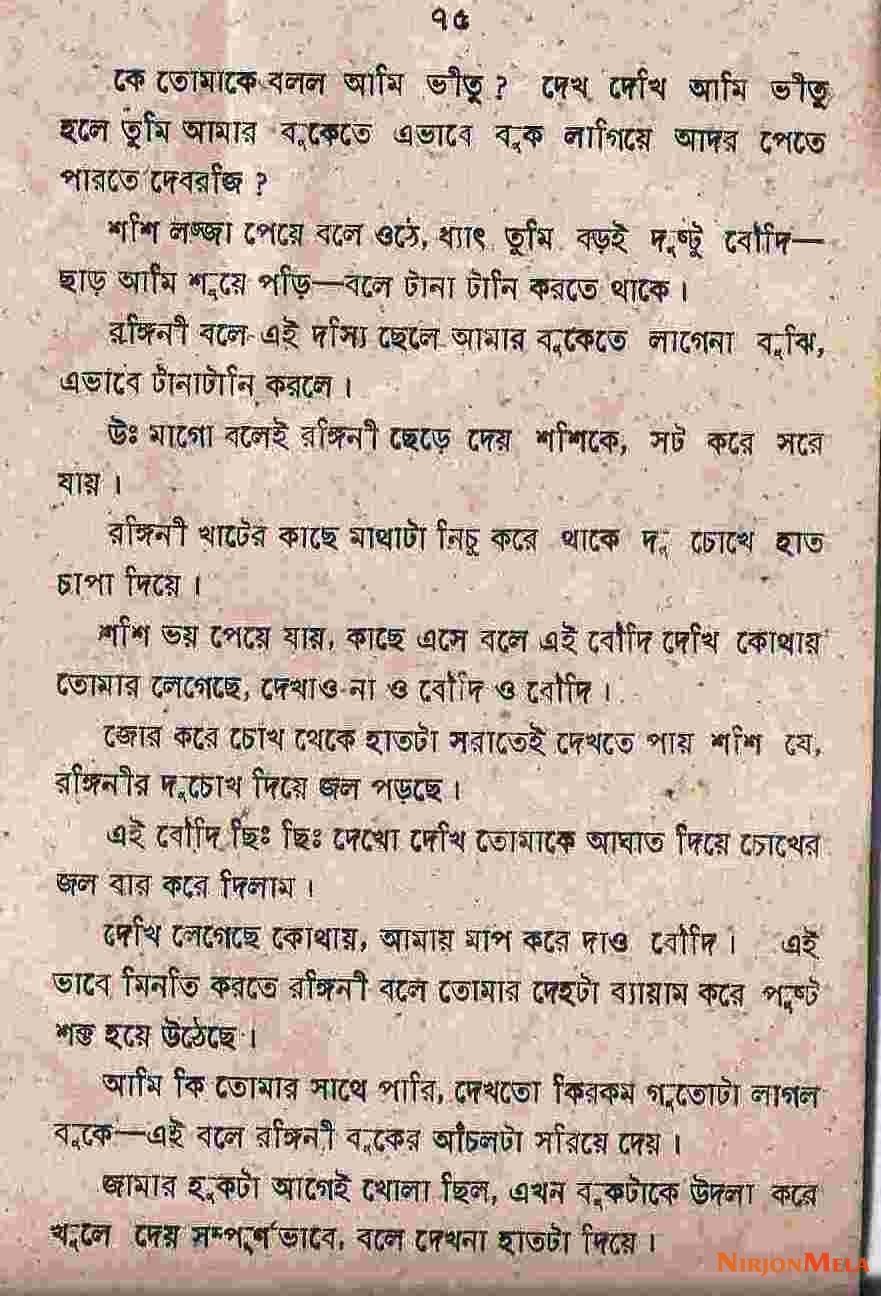 ৭৫
কে তোমাকে বলল আমি ভীতু? দেখ দেখি আমি ভীতু
হলে তুমি আমার বুকেতে এভাবে বুক লাগিয়ে আদর পেতে
পারতে দেবরজি?
শশি লজ্জা পেয়ে বলে ওঠে, ধ্যাৎ তুমি বড়ই দুষ্টু বৌদি—
ছাড় আমি শুয়ে পড়ি—বলে টানা টানি করতে থাকে।
রঙ্গিনী বলে এই দস্যি ছেলে আমার বুকেতে লাগেনা বুঝি,
এভাবে টানাটানি করলে।
উঃ মাগো বলেই রঙ্গিনী ছেড়ে দেয় শশিকে, সট করে সরে
যায়।
রঙ্গিনী খাটের কাছে মাথাটা নিচু করে থাকে দু চোখে হাত
চাপা দিয়ে।
শশি ভয় পেয়ে যায়, কাছে এসে বলে এই বৌদি দেখি কোথায়
তোমার লেগেছে, দেখাও না ও বৌদি ও বৌদি।
জোর করে চোখ থেকে হাতটা সরাতেই দেখতে পায় শশি যে,
রঙ্গিনীর দুচোখ দিয়ে জল পড়ছে।
এই বৌদি ছিঃ ছিঃ দেখো দেখি তোমাকে আঘাত দিয়ে চোখের
জল বার করে দিলাম।
দেখি লেগেছে কোথায়, আমায় মাপ করে দাও বৌদি। এই
ভাবে মিনতি করতে রঙ্গিনী বলে তোমার দেহটা ব্যায়াম করে পুষ্ট
শক্ত হয়ে উঠেছে।
আমি কি তোমার সাথে পারি, দেখতো কিরকম গুতোটা লাগল
বুকে—এই বলে রঙ্গিনী বুকের আঁচলটা সরিয়ে দেয়।
জামার হুকটা আগেই খোলা ছিল, এখন বুকটাকে উদলা করে
খুলে দেয় সম্পূর্ণভাবে, বলে দেখনা হাতটা দিয়ে।
NIRJONMELA